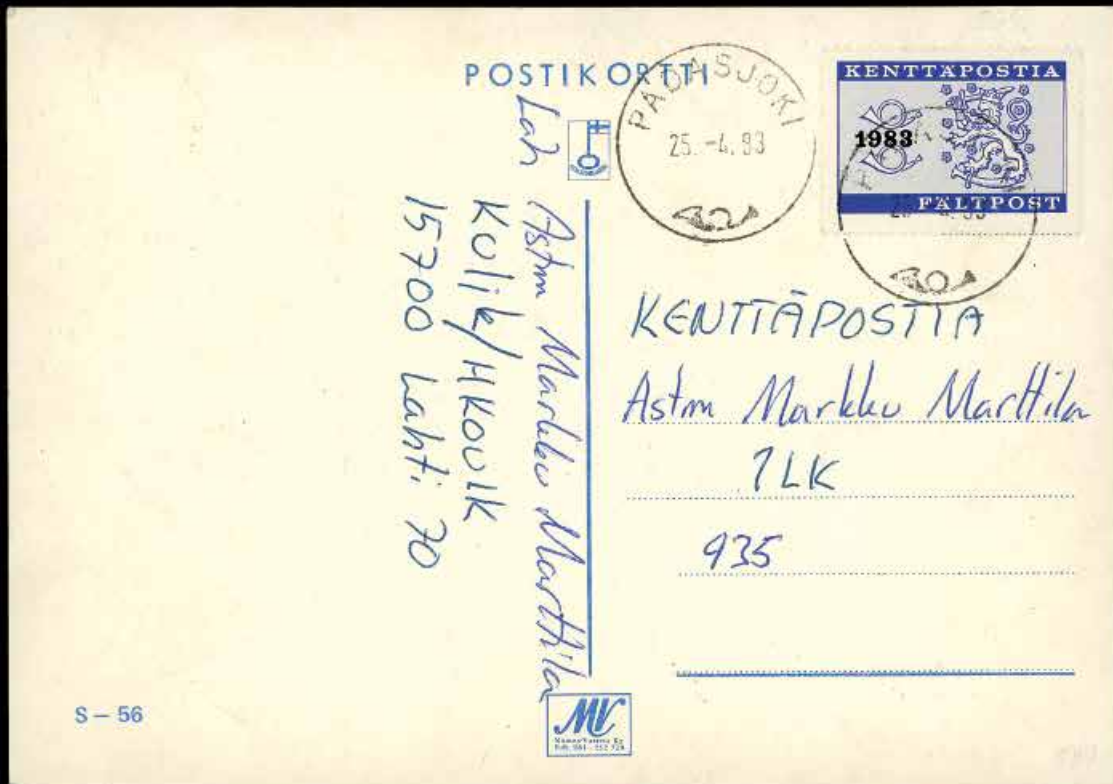 POSTIKORTTI
PADASJOKI
25.-4.93
KENTTÄPOSTIA
1983
FÄLTPOST
Läh
Astm Markku Marttila
KulJk/HKoulK
15700 Lahti 70
KENTTÄPOSTIA
Astm Markku Marttila
1LK
935
S – 56
MV